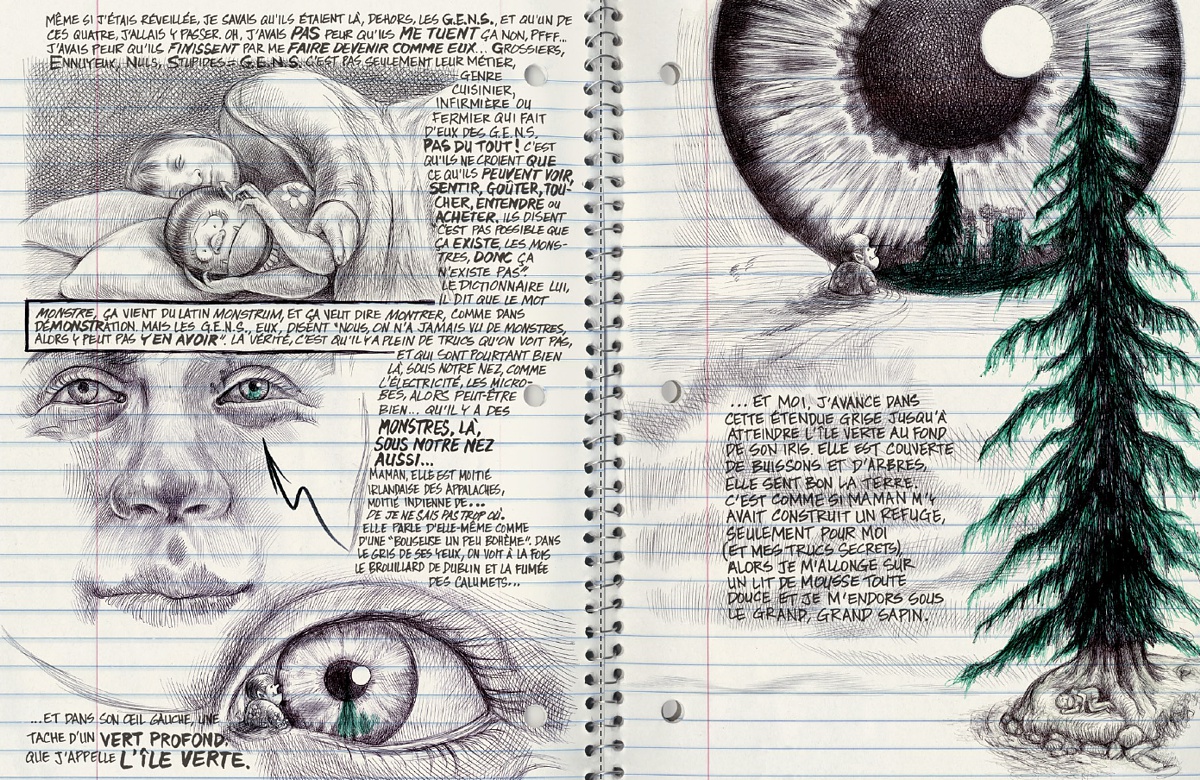 MÊME SI J'ÉTAIS RÉVEILLÉE, JE SAVAIS QU'ILS ÉTAIENT LÀ, DEHORS, LES G.E.N.S., ET QU'UN DE
CES QUATRE, J'ALLAIS Y PASSER. OH, J'AVAIS PAS PEUR QU'ILS ME TUENT ÇA NON, PFFF...
J'AVAIS PEUR QU'ILS FINISSENT PAR ME FAIRE DEVENIR COMME EUX... GROSSIERS,
ENNUYEUX, NULS, STUPIDES = G.E.N.S. C'EST PAS SEULEMENT LEUR MÉTIER,
GENRE
CUISINIER,
INFIRMIÈRE OU
FERMIER QUI FAIT
D'EUX DES G.E.N.S.
PAS DU TOUT ! C'EST
QU'ILS NE CROIENT QUE
CE QU'ILS PEUVENT VOIR,
SENTIR, GOÛTER, TOU-
CHER, ENTENDRE OU
ACHETER. ILS DISENT
"C'EST PAS POSSIBLE QUE
ÇA EXISTE, LES MONS-
TRES, DONC ÇA
N'EXISTE PAS"
LE DICTIONNAIRE LUI,
IL DIT QUE LE MOT
MONSTRE, ÇA VIENT DU LATIN MONSTRUM, ET ÇA VEUT DIRE MONTRER, COMME DANS
DÉMONSTRATION. MAIS LES G.E.N.S., EUX, DISENT "NOUS, ON N'A JAMAIS VU DE MONSTRES,
ALORS Y PEUT PAS Y EN AVOIR". LA VÉRITÉ, C'EST QU'IL Y A PLEIN DE TRUCS QU'ON VOIT PAS,
ET QUI SONT POURTANT BIEN
LÀ, SOUS NOTRE NEZ, COMME
L'ÉLECTRICITÉ, LES MICRO-
BES, ALORS PEUT-ÊTRE
BIEN... QU'IL Y A DES
MONSTRES, LÀ,
SOUS NOTRE NEZ
AUSSI...
MAMAN, ELLE EST MOITIÉ
IRLANDAISE DES APPALACHES,
MOITIÉ INDIENNE DE...
DE JE NE SAIS PAS TROP OÙ.
ELLE PARLE D'ELLE-MÊME COMME
D'UNE "BOUSEUSE UN PEU BOHÈME". DANS
LE GRIS DE SES YEUX, ON VOIT À LA FOIS
LE BROUILLARD DE DUBLIN ET LA FUMÉE
DES CALUMETS...
...ET DANS SON ŒIL GAUCHE, UNE
TACHE D'UN VERT PROFOND,
QUE J'APPELLE L'ÎLE VERTE.
... ET MOI, J'AVANCE DANS
CETTE ÉTENDUE GRISE JUSQU'À
ATTEINDRE L'ÎLE VERTE AU FOND
DE SON IRIS. ELLE EST COUVERTE
DE BUISSONS ET D'ARBRES,
ELLE SENT BON LA TERRE.
C'EST COMME SI MAMAN M'Y
AVAIT CONSTRUIT UN REFUGE,
SEULEMENT POUR MOI
(ET MES TRUCS SECRETS),
ALORS JE M'ALLONGE SUR
UN LIT DE MOUSSE TOUTE
DOUCE ET JE M'ENDORS SOUS
LE GRAND, GRAND SAPIN.